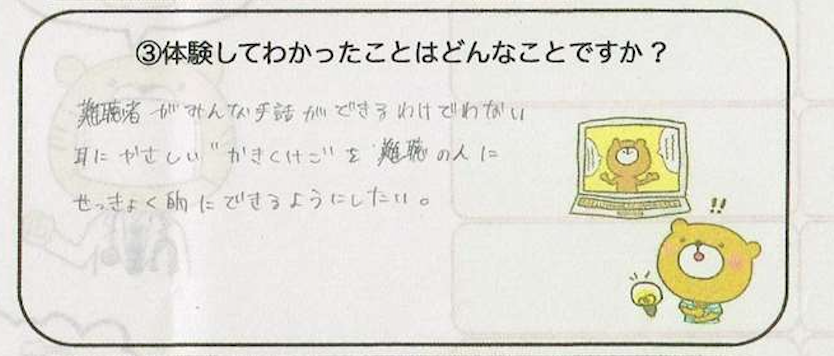 ③体験してわかったことはどんなことですか？
難聴者がみんな手話ができるわけでわない
耳にやさしい"かきくけこ"を難聴の人に
せっきょく的にできるようにしたい。
!!